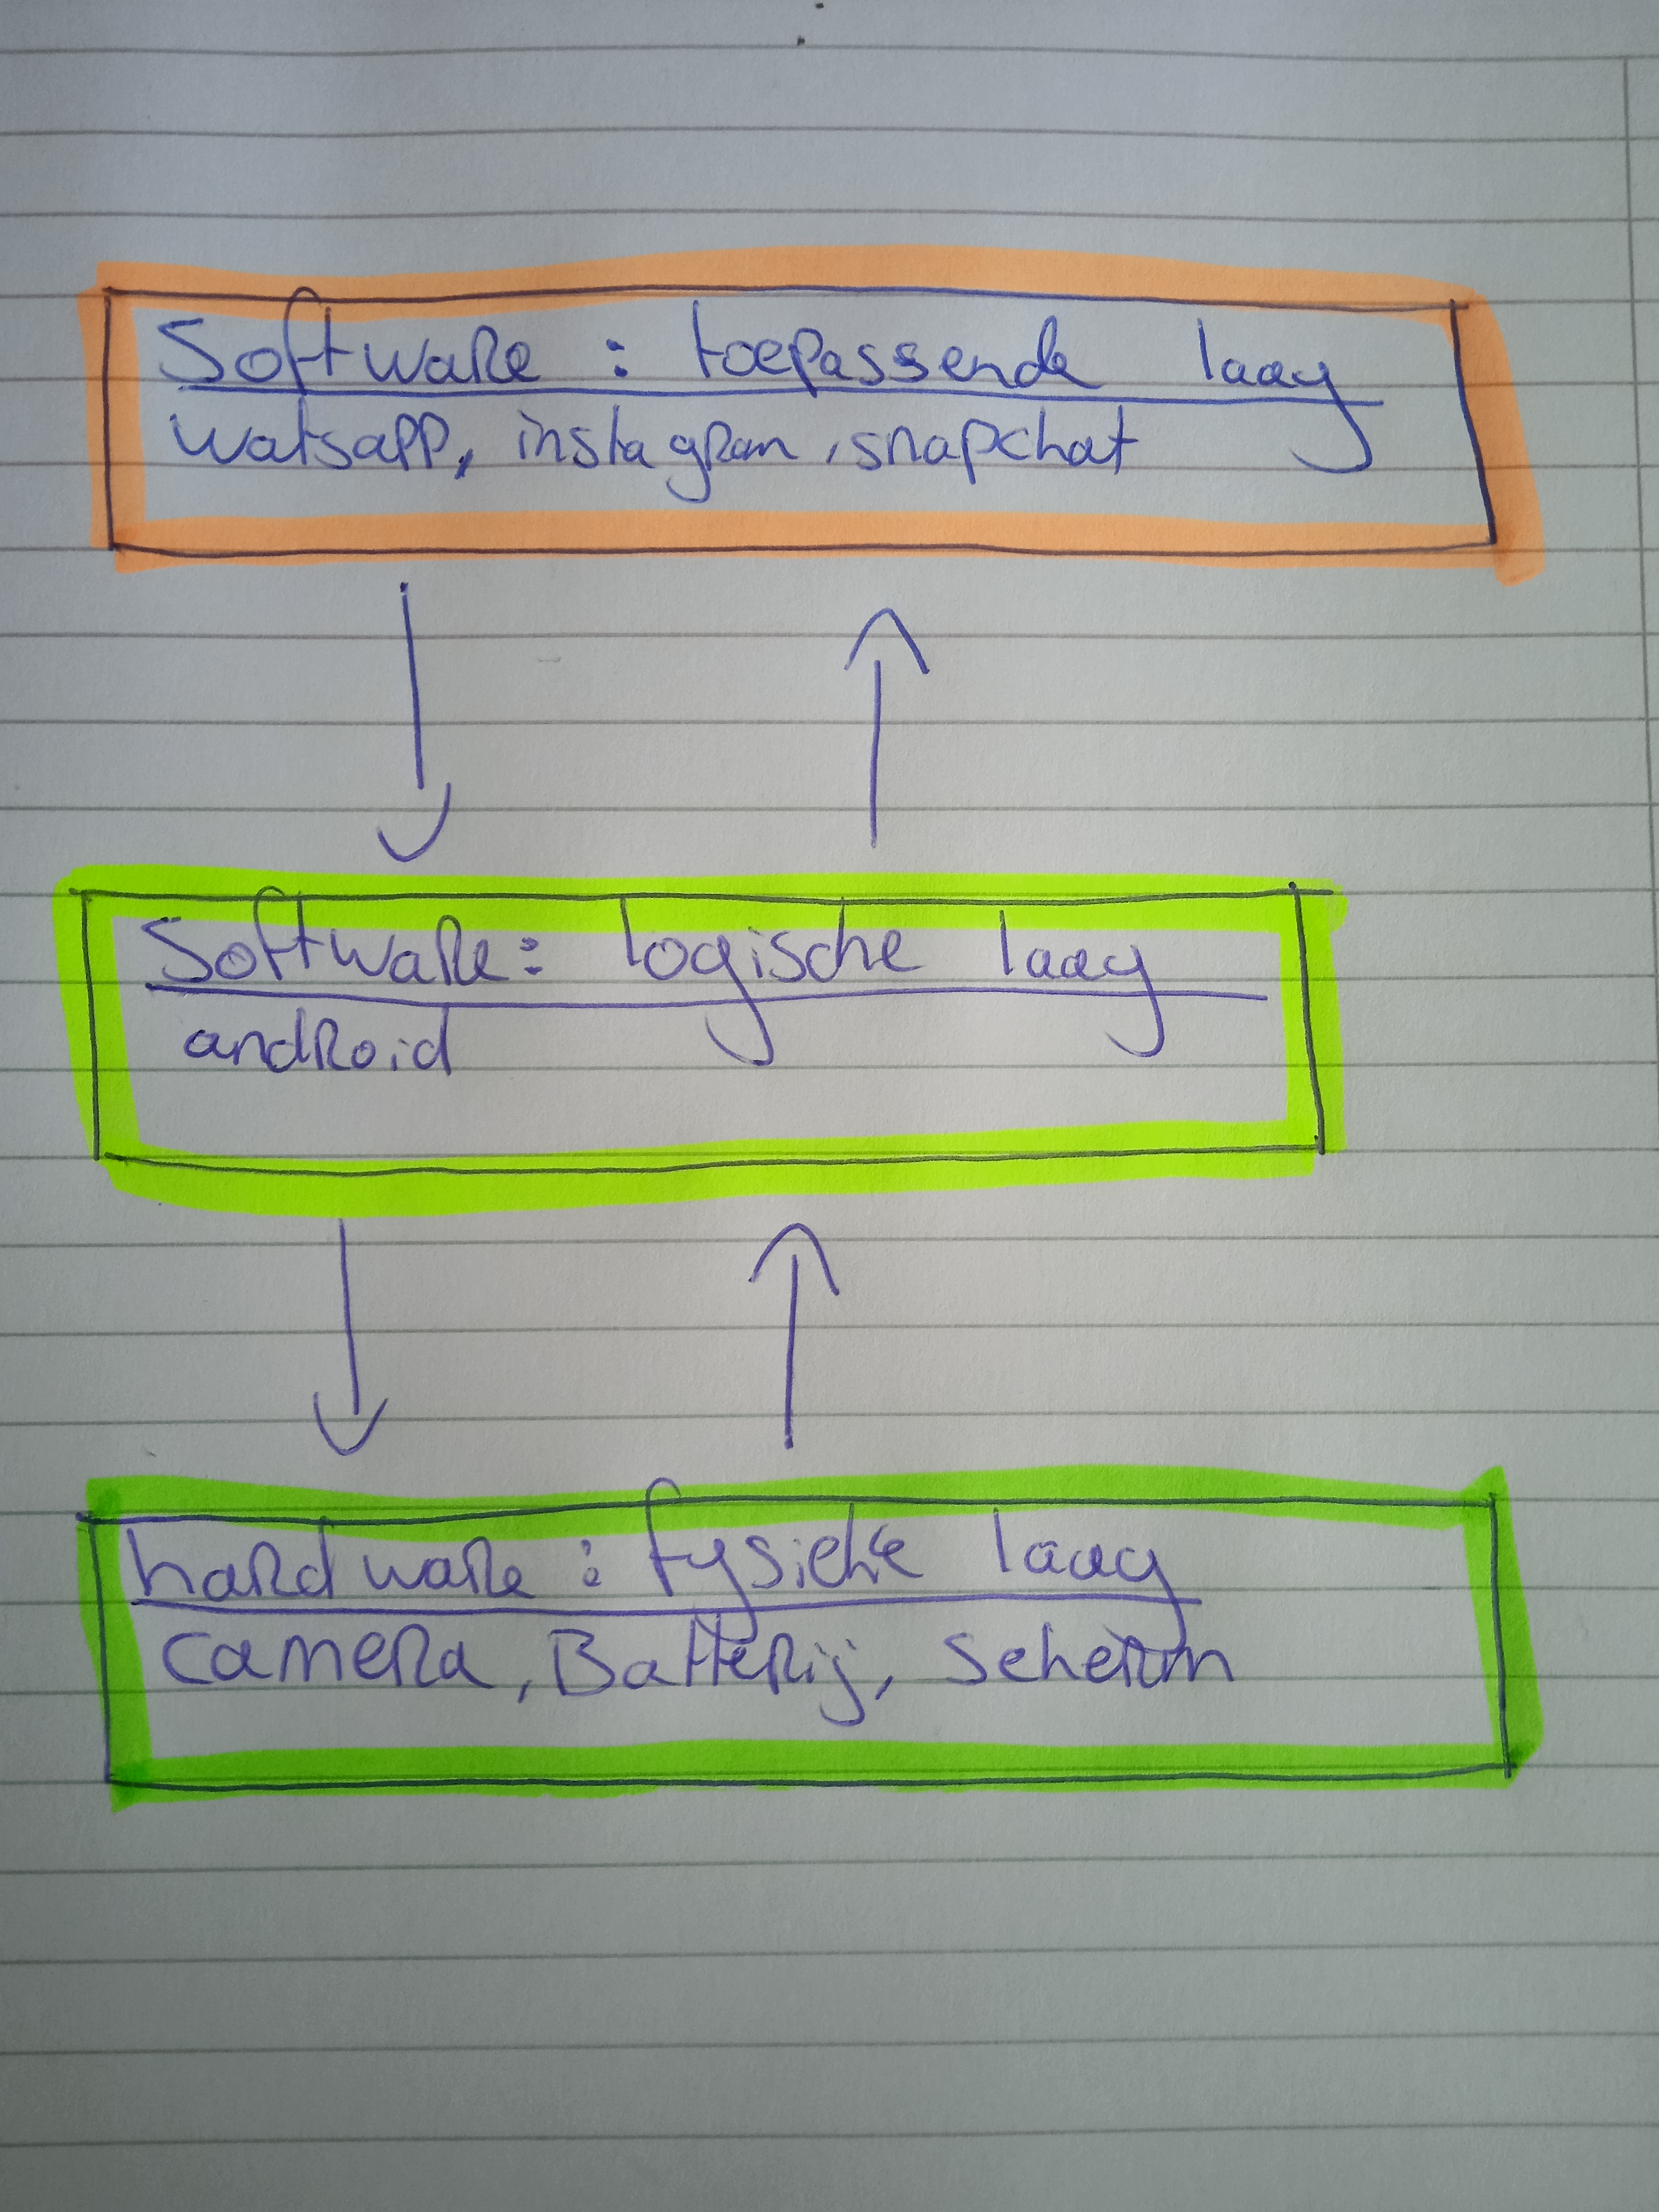 Software : toepassende laag
watsapp, instagram, snapchat
Software: logische laag
android
hardware : fysieke laag
camera, Batterij,